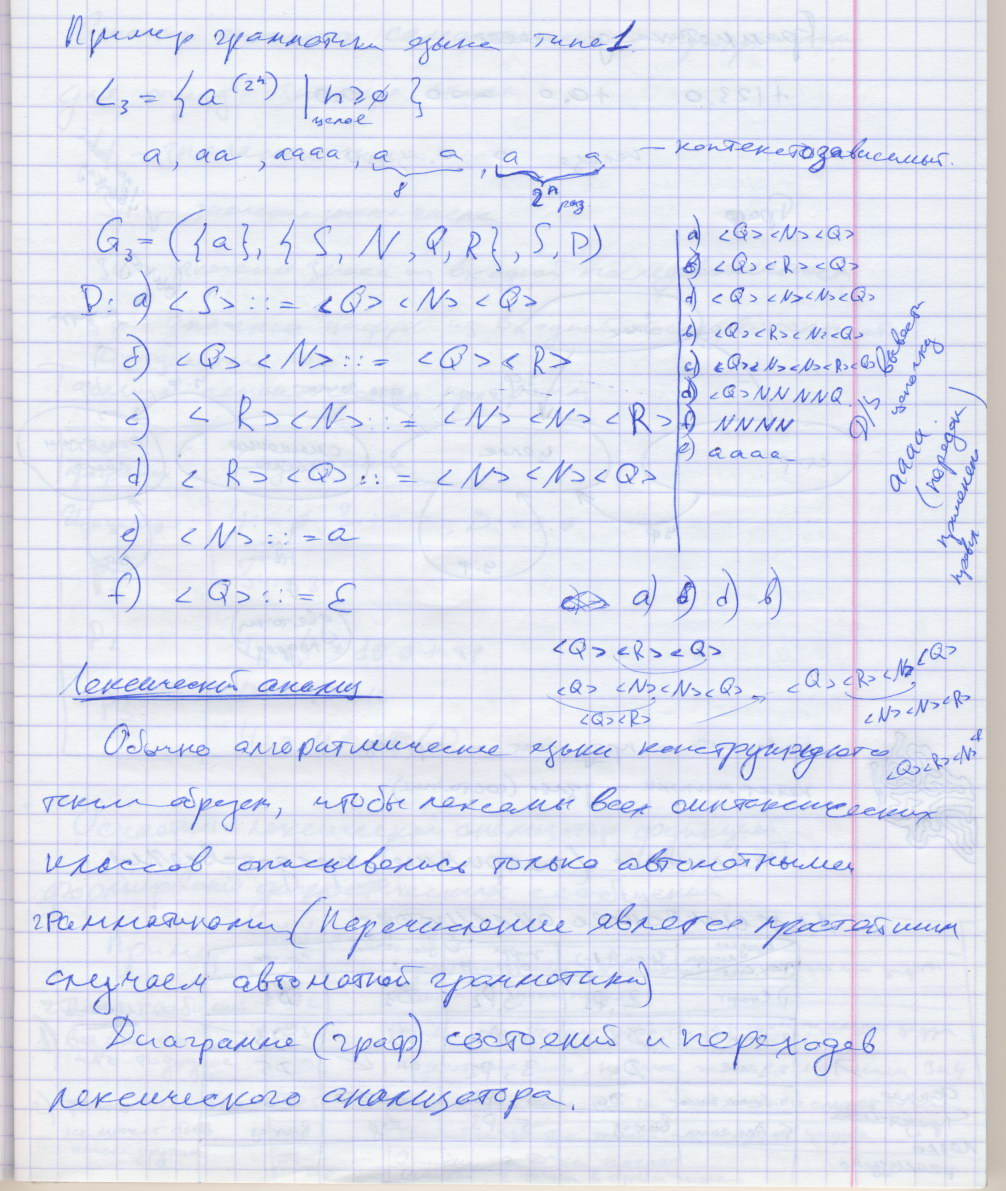 Пример грамматики языка типа 1.
L₃ = { a^(2ⁿ) | n ≥ 0 }
целое
a, aa, aaaa, a a, a a — контекстозависимый.
8 2ⁿ раз
G₃ = ({a}, { S, N, Q, R}, S, D)
D: a) <S> ::= <Q> <N> <Q>
b) <Q> <N> ::= <Q> <R>
c) <R> <N> ::= <N> <N> <R>
d) <R> <Q> ::= <N> <N> <Q>
e) <N> ::= a
f) <Q> ::= ε
a) <Q> <N> <Q>
b) <Q> <R> <Q>
d) <Q> <N> <N> <Q>
b) <Q> <R> <N> <Q>
c) <Q> <N> <N> <R> <Q>
d) <Q> N N N N Q
f) N N N N
e) a a a a
Д/З Вывести
цепочку
aaaa.
(порядок
применен.
правил)
a) b) d) b)
<Q> <R> <Q>
<Q> <N> <N> <Q> <Q> <R> <N> <Q>
<Q> <R> <N> <N> <R>
<Q> <R> <N>
Лексический анализ
Обычно алгоритмические языки конструируются
таким образом, чтобы лексемы всех синтаксических
классов описывались только автоматными
грамматиками (Перечисление является простейшим
случаем автоматной грамматики)
Диаграмма (граф) состояний и переходов
лексического анализатора.